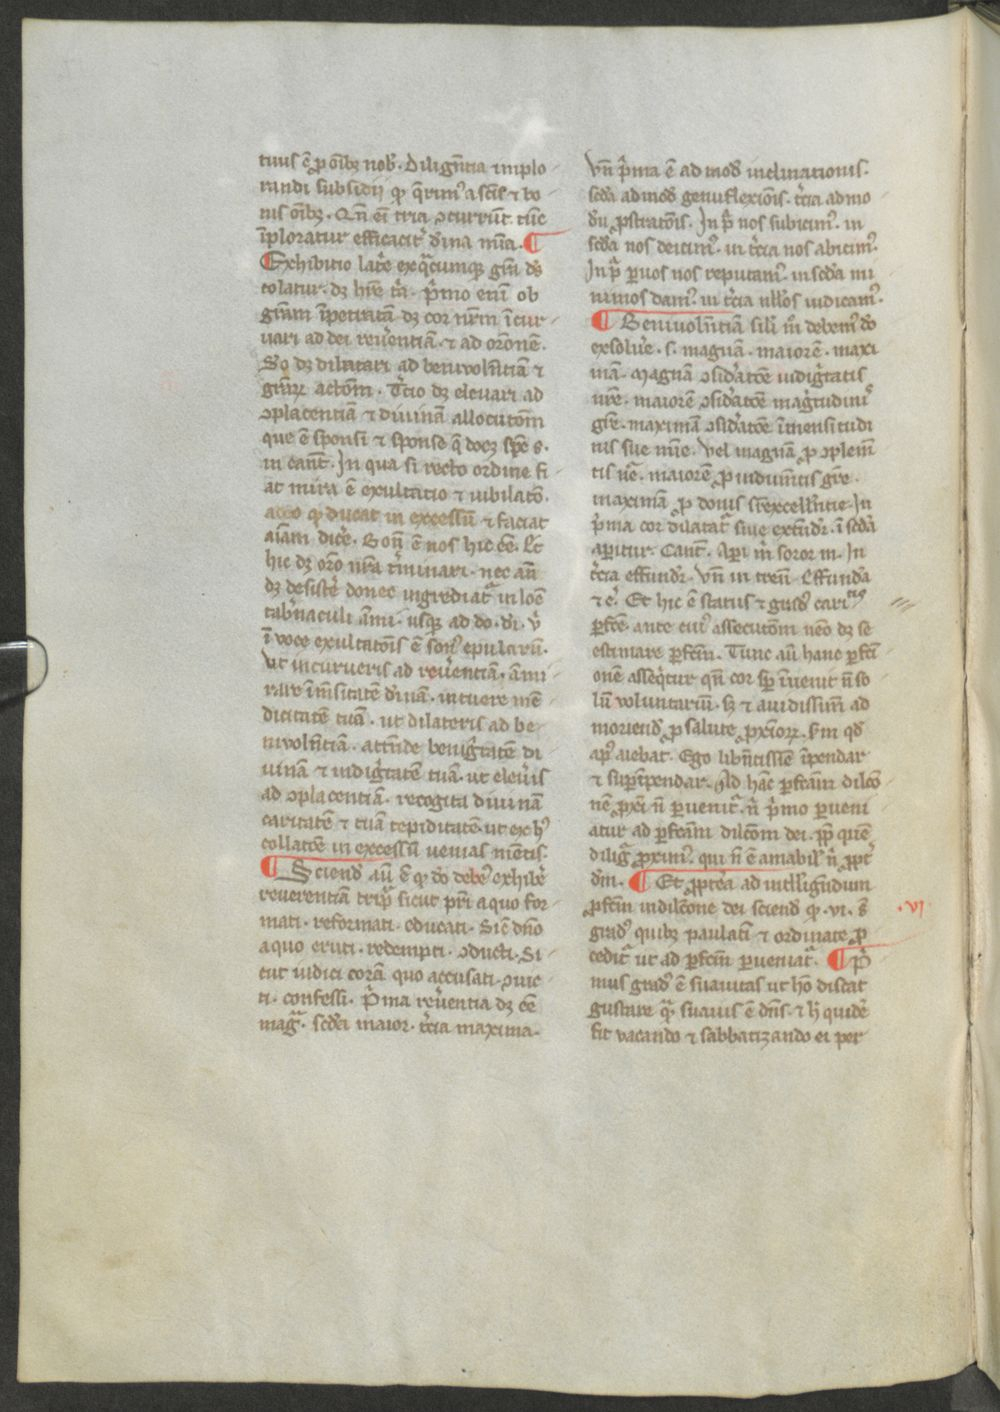 tuus ē ꝓ oībꝫ nob̾. Diligētia implo
randi subsidij ꝙ q̄rimꝰ a sc̄is ⁊ bo
nis oībꝫ. Qn̄ eī tria ↄcurrūt tūc
īploratur efficacit̾ diīna mīa. ¶
Exhibitio lat̾e ex q̄cumqꝫ gr̄m dꝰ
colatur. dꝫ hr̄e t̾a. p̾mo enī ob
gr̄am īpetratā dꝫ cor nr̄m īcur
uari ad dei reu̾entiā. ⁊ ad or̄onē.
So dꝫ dilatari ad beniuol̄ntiā ⁊
gr̄aꝝ actōm. T̾cio dꝫ eleuari ad
ↄplacentiā ⁊ diuinā allocutōm
que ē sponsi ⁊ sponse q̄ docꝫ spc̄ s.
in cant̄. In qua si recto ordine fi
at mira ē exultatio ⁊ iubilatō.
adeo ꝙ ducat in excessū ⁊ faciat
aīam dic̾e. Bonū ē nos hic eē. Et
hic dꝫ or̄o nr̄a t̾minari. nec an̄
dꝫ desist̾e donec ingrediat᷑ in locū
tab̾naculi am̄i. usqꝫ ad do. di. ū
ī voce exultatōis ⁊ sonꝰ epulātū.
Ut incurueris ad reu̾entiā. ami
rare īmēsitatē diuinā. intuere mē
dicitatē tuā. ut dilateris ad be
niuol̄ntiā. attēde benig̾tatē di
uinā ⁊ indig̾tatē tuā. ut eleu̾is
ad ↄplacentiā. recogita diuinā
caritatē ⁊ tuā tepiditatē. ut ex hꝰ
collatōe in excessū uenias mētis.
¶ Sciendū aū ē ꝙ deo debeꝰ exhib̾e
reuerentiā triplr̄ sicut pr̄i a quo for
mati. reformati. educati. Sic̄ dn̄o
a quo eruti. redempti. ↄducti. Si
cut iudici corā quo accusati. ↄuic
ti. confessi. P̾ma reu̾entia dꝫ eē
mag̾. sc̄da maior. t̾cia maxima.
Vn̄ p̾ma ē ad modū inclinationis.
sc̄da ad modū genuflexiōis. t̾cia ad mo
dū ꝓstratōis. In p̾ nos subicimꝰ. in
sc̄da nos deicimꝰ. in t̾cia nos abicimꝰ.
In p̾ paruos nos reputamꝰ. in sc̄da mi
nimos damꝰ. in t̾cia nllos iudicamꝰ.
¶ Beniuol̄ntiā sil̾i mō debemꝰ deo
exsolu̾e. s. magnā. maiorē. maxi
mā. Magnā ↄsid̾atōe indig̾tatis
nr̄e. maiorē ↄsid̾atōe mag̾tudinis
gr̄e. maximā ↄsid̾atōe īmensitudi
nis sue mīe. Vel magnā ꝓ
maiorē ꝓ indumētis gr̄e.
maximā ꝓ donis sr̄excell̄ntie. In
p̾ma cor dilatat᷑ siue extēdit᷑. ī sc̄da
ap̾itur. Cant̄. Ap̾i m̾ soror m̄. In
t̾cia effundit᷑. Vn̄ in tren̄. Effunda
⁊ c̾. Et hic ē status ⁊ gradꝰ caritatis
ꝑfc̄e. ante cuiꝰ assecutōm nēo dꝫ se
estimare ꝑfc̄m. Tunc aū hanc ꝑfcī
onē asseq̾tur qn̄ cor sꝑ īuenit nō so
lū voluntariū. sꝫ ⁊ auidissimū ad
moriendū ꝓ salute ꝓximoꝝ. scdm qd̄
apꝰ aiebat. Ego libn̄tissime īpendar
⁊ suꝑīpendar. Ad hāc ꝑfcām dilcō
nē ꝓxi nō peruenit᷑. nisi p̾mo perueni
atur ad ꝑfcām dilcōm dei. ꝓpt̾ quē
diligit᷑ ꝓximꝰ. qui nō ē amabil̾ nisi ꝓpt̾
dm̄. ¶ Et ꝓpt̾ea ad intelligendum
ꝓfcm̄ in dilcōne dei sciendū ꝙ. vi. sunt
gradꝰ quibꝫ paulatī ⁊ ordinate ꝓ
cedit᷑ ut ad ꝑfcm̄ perueniat᷑. ¶ P̾
mus gradꝰ ē suauitas ut hō discat
gustare q̄ suauis ē dn̄s. ⁊ h̾ quidē
fit vacando ⁊ sabbatizando ei per
.vi.